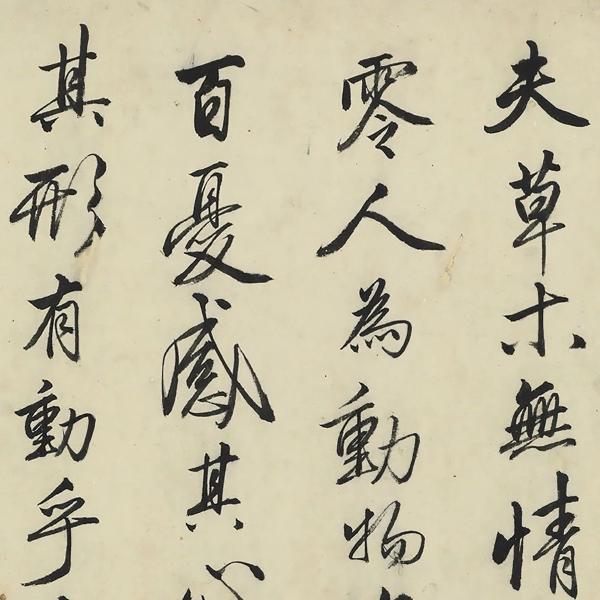 夫草木無情
零人為動物
百憂感其心
其形有動乎